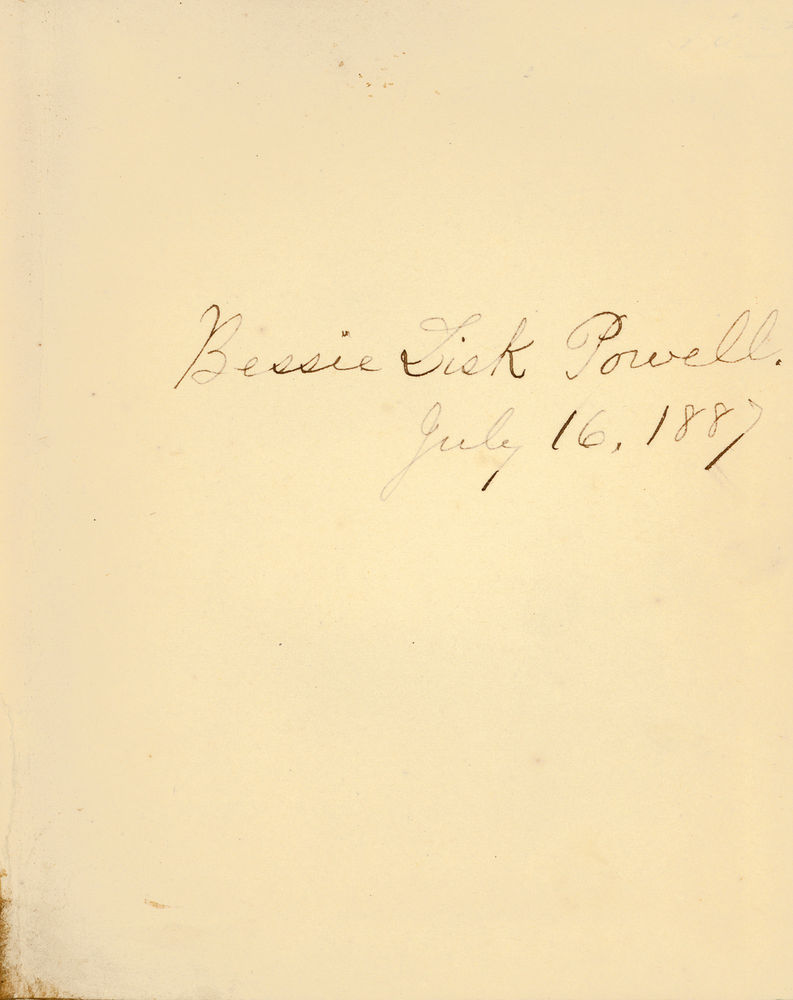 Bessie Lisk Powell.
July 16, 1887